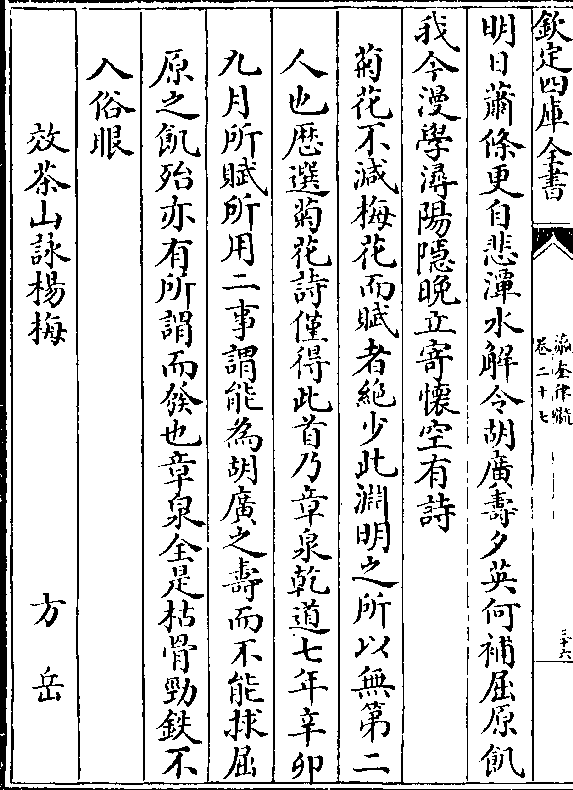 欽定四庫全書
瀛奎律髓
卷二十七
三十六
明日蕭條更自悲潭水解令胡廣壽夕英何補屈原飢
我今漫學潯陽隠晚立寄懐空有詩
菊花不減梅花而賦者絶少此淵明之所以無第二
人也厯選菊花詩僅得此首乃章泉乾道七年辛卯
九月所賦所用二事謂能為胡廣之壽而不能捄屈
原之飢殆亦有所謂而發也章泉全是枯骨勁鉄不
入俗眼
效茶山詠楊梅 方岳